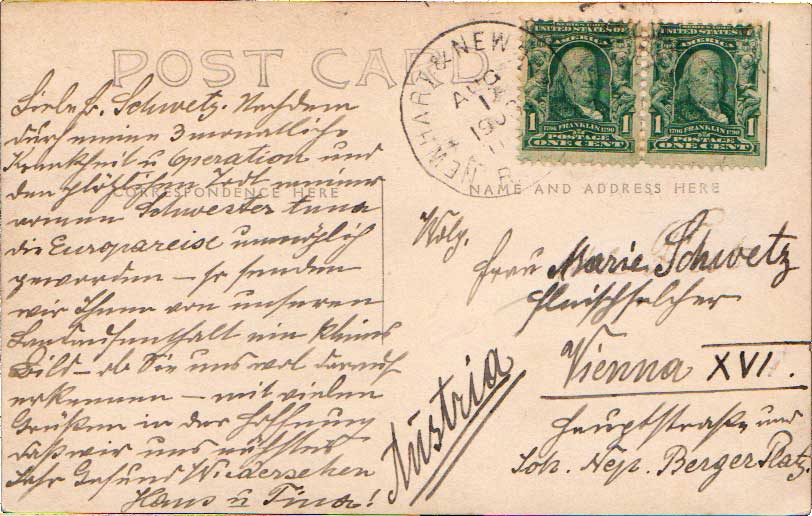 POST CARD
Liebe F. Schwetz. Nachdem
durch meine 3 monatliche
Krankheit u Operation und
den plötzlichen Tod meiner
armen Schwester Anna
die Europareise unmöglich
geworden – so senden
wir Ihnen von unseren
Landaufenthalt ein kleines
Bild – ob Sie uns wol darauf
erkennen – mit vielen
Grüßen in der Hoffnung
daß wir uns nächstes
Jahr Gesund Wiedersehen
Hans u Tina!
CORRESPONDENCE HERE
NAME AND ADDRESS HERE
NEW HARTFORD
AUG
1
SERIES OF 1902
UNITED STATES OF AMERICA
1 1
1706 FRANKLIN 1790
POSTAGE
ONE CENT
UNITED STATES OF AMERICA
1 1
1706 FRANKLIN 1790
POSTAGE
ONE CENT
Wolg.
Frau Marie Schwetz
Fleischselcher
Vienna XVI.
Hauptstraße und
Joh. Nep. Berger Platz.
Austria